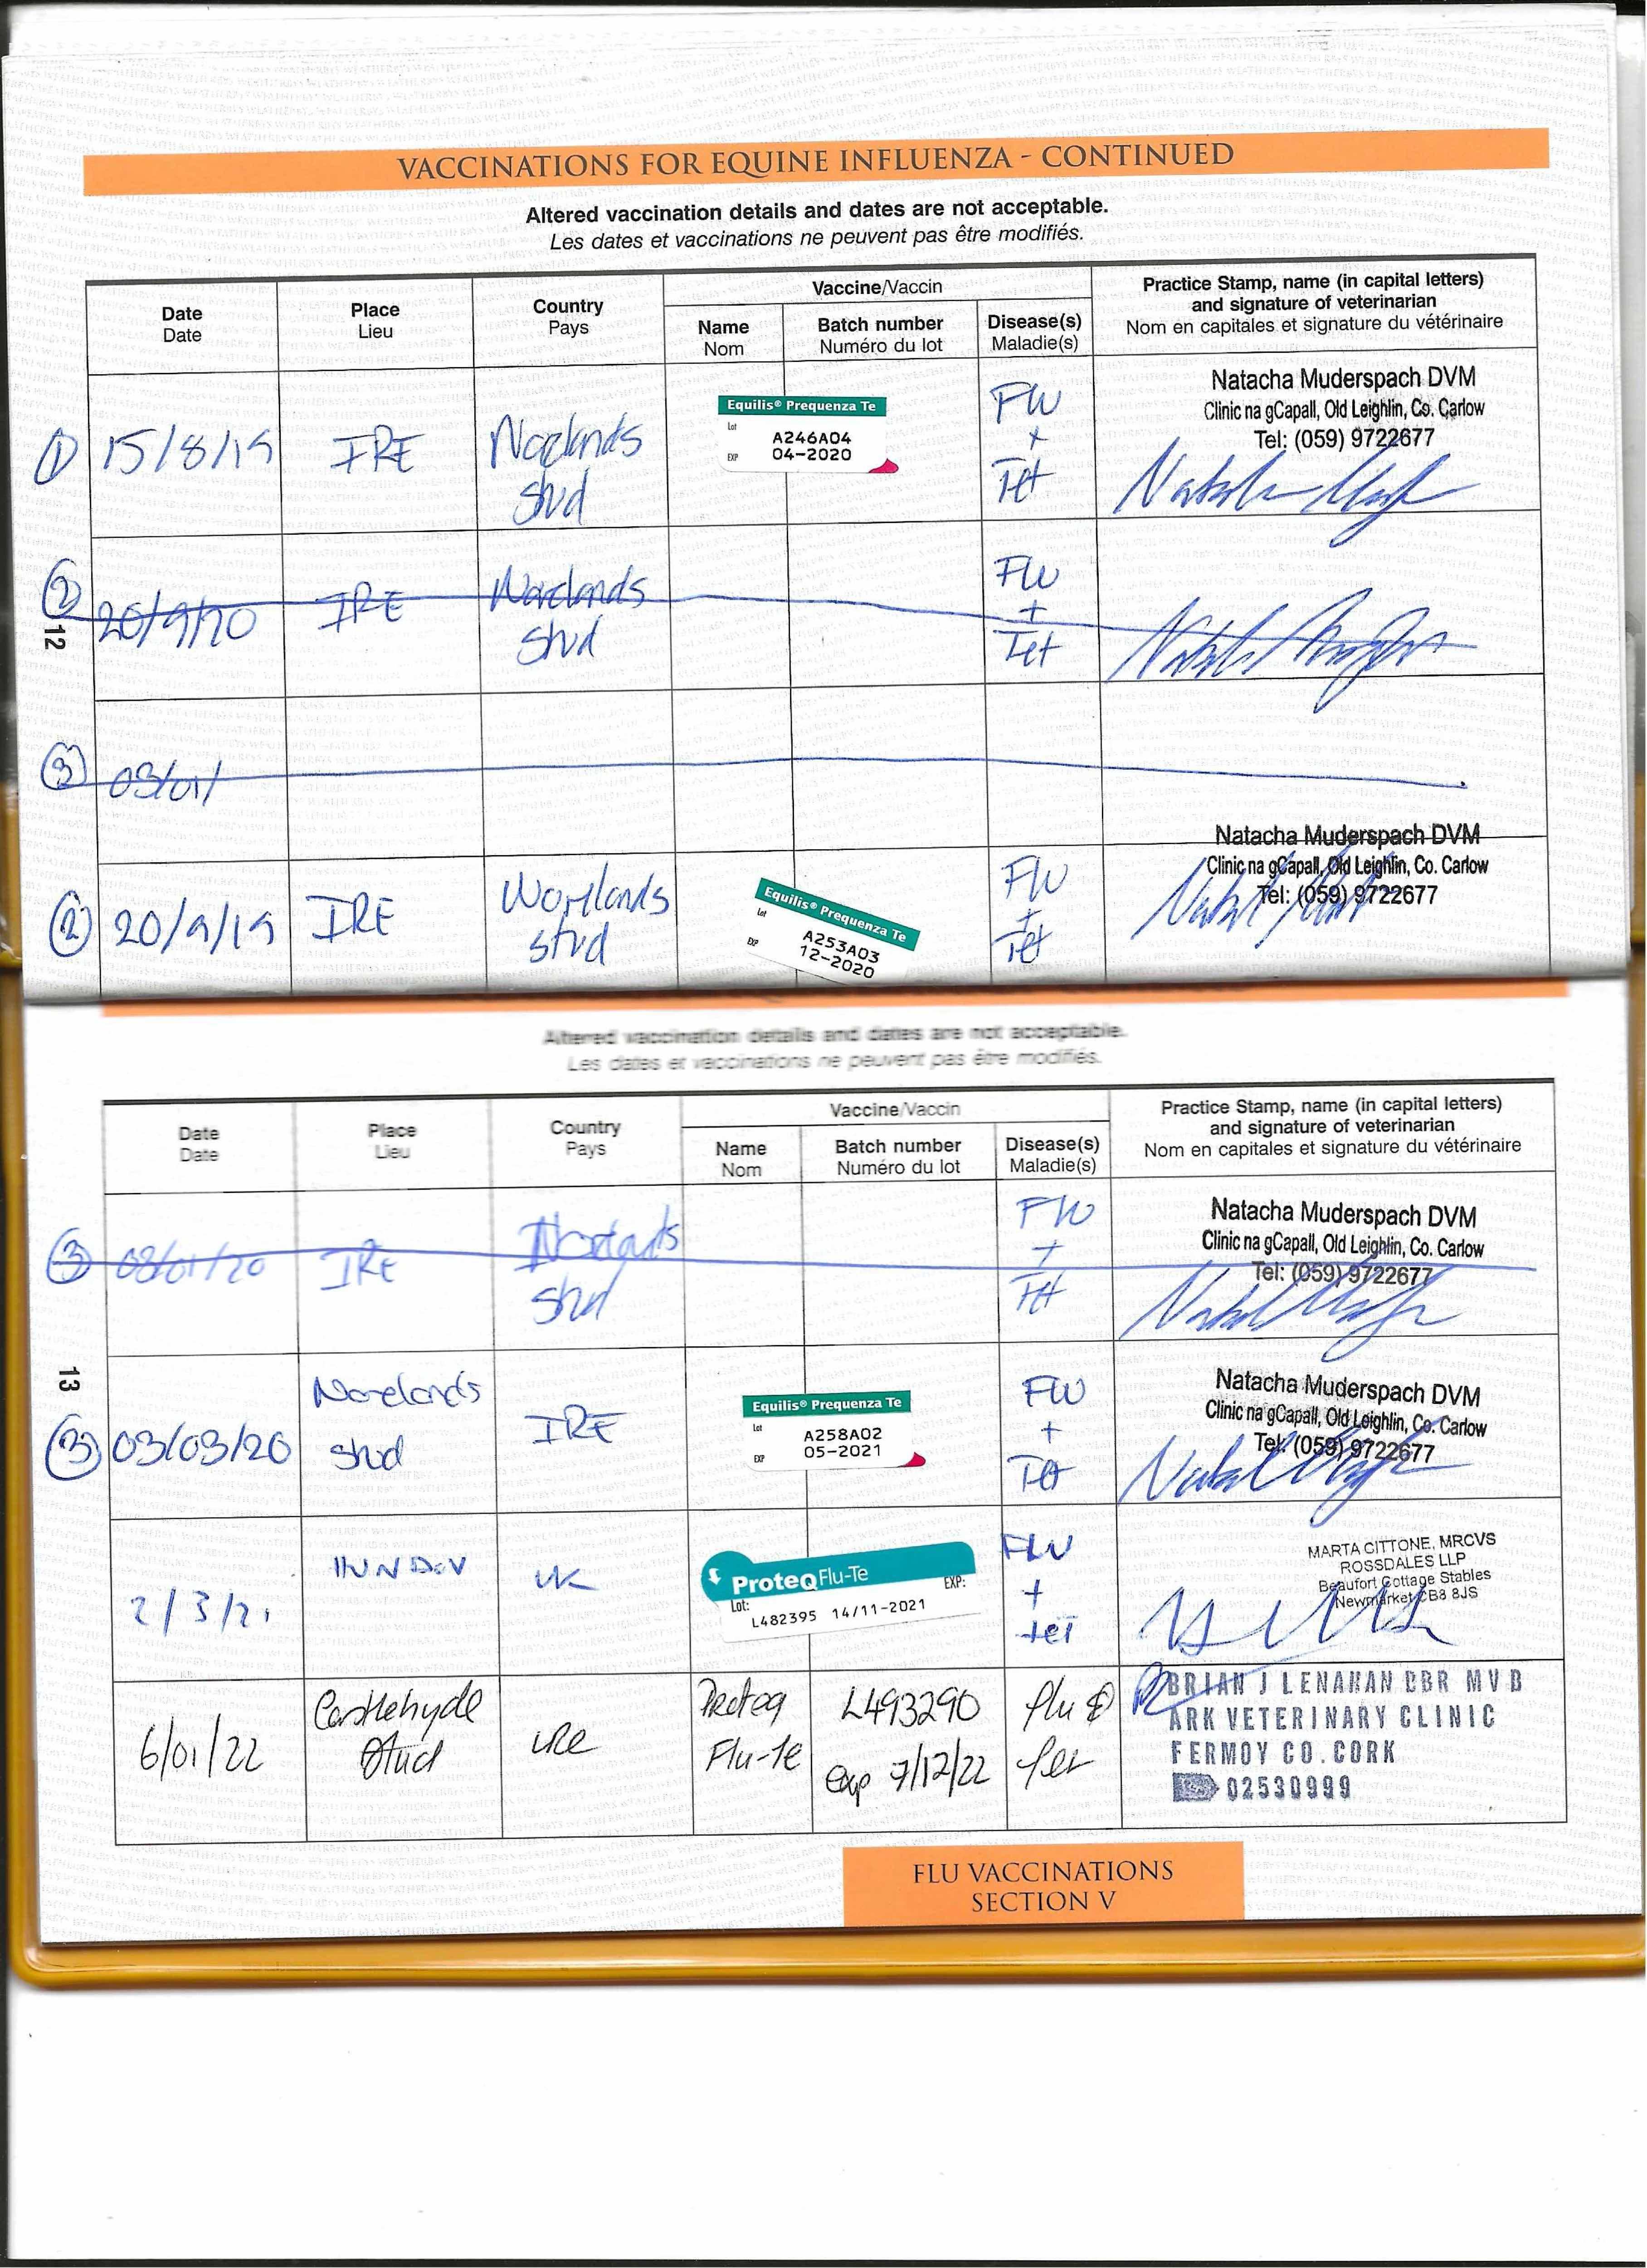 VACCINATIONS FOR EQUINE INFLUENZA - CONTINUED
Altered vaccination details and dates are not acceptable.
Les dates et vaccinations ne peuvent pas être modifiés.
Date
Date
Place
Lieu
Country
Pays
Vaccine/Vaccin
Name
Nom
Batch number
Numéro du lot
Disease(s)
Maladie(s)
Practice Stamp, name (in capital letters)
and signature of veterinarian
Nom en capitales et signature du vétérinaire
① 15/8/19 IRE Norelands
stud
Equilis® Prequenza Te
Lot A246A04
EXP 04-2020
Flu
+
Tet
Natacha Muderspach DVM
Clinic na gCapall, Old Leighlin, Co. Carlow
Tel: (059) 9722677
② 20/9/20 IRE Norelands
stud
Flu
+
Tet
12
③ 03/01/
② 20/9/19 IRE Norelands
stud
Equilis® Prequenza Te
Lot A253A03
EXP 12-2020
Flu
+
Tet
Natacha Muderspach DVM
Clinic na gCapall, Old Leighlin, Co. Carlow
Tel: (059) 9722677
Altered vaccination details and dates are not acceptable.
Les dates et vaccinations ne peuvent pas être modifiés.
Date
Date
Place
Lieu
Country
Pays
Vaccine/Vaccin
Name
Nom
Batch number
Numéro du lot
Disease(s)
Maladie(s)
Practice Stamp, name (in capital letters)
and signature of veterinarian
Nom en capitales et signature du vétérinaire
③ 03/01/20 IRE Norelands
stud
Flu
+
Tet
Natacha Muderspach DVM
Clinic na gCapall, Old Leighlin, Co. Carlow
Tel: (059) 9722677
13
③ 03/03/20 Norelands
stud
IRE
Equilis® Prequenza Te
Lot A258A02
EXP 05-2021
Flu
+
Tet
Natacha Muderspach DVM
Clinic na gCapall, Old Leighlin, Co. Carlow
Tel: (059) 9722677
2/3/21 UK
ProteqFlu-Te
Lot: EXP:
L482395 14/11-2021
FLU
+
tet
MARTA CITTONE, MRCVS
ROSSDALES LLP
Beaufort Cottage Stables
Newmarket CB8 8JS
6/01/22 Castlehyde
Stud
IRE
Proteq
Flu-Te
L493290
exp 7/12/22
flu &
Tet
BRIAN J LENAHAN DBR MVB
ARK VETERINARY CLINIC
FERMOY CO. CORK
02530999
FLU VACCINATIONS
SECTION V